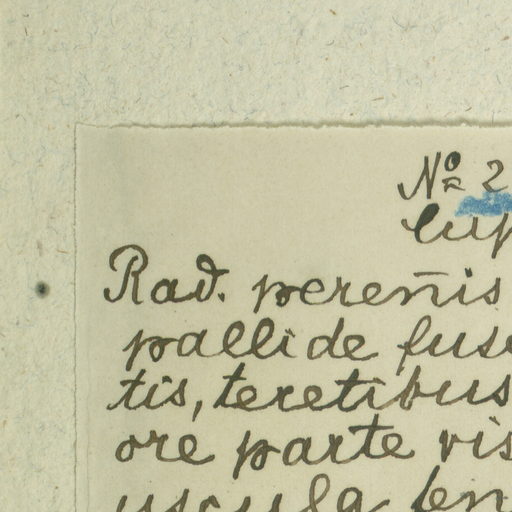 Nº 2
Cup
Rad. pereñis
pallide fus
tis, teretibus
ore parte vis